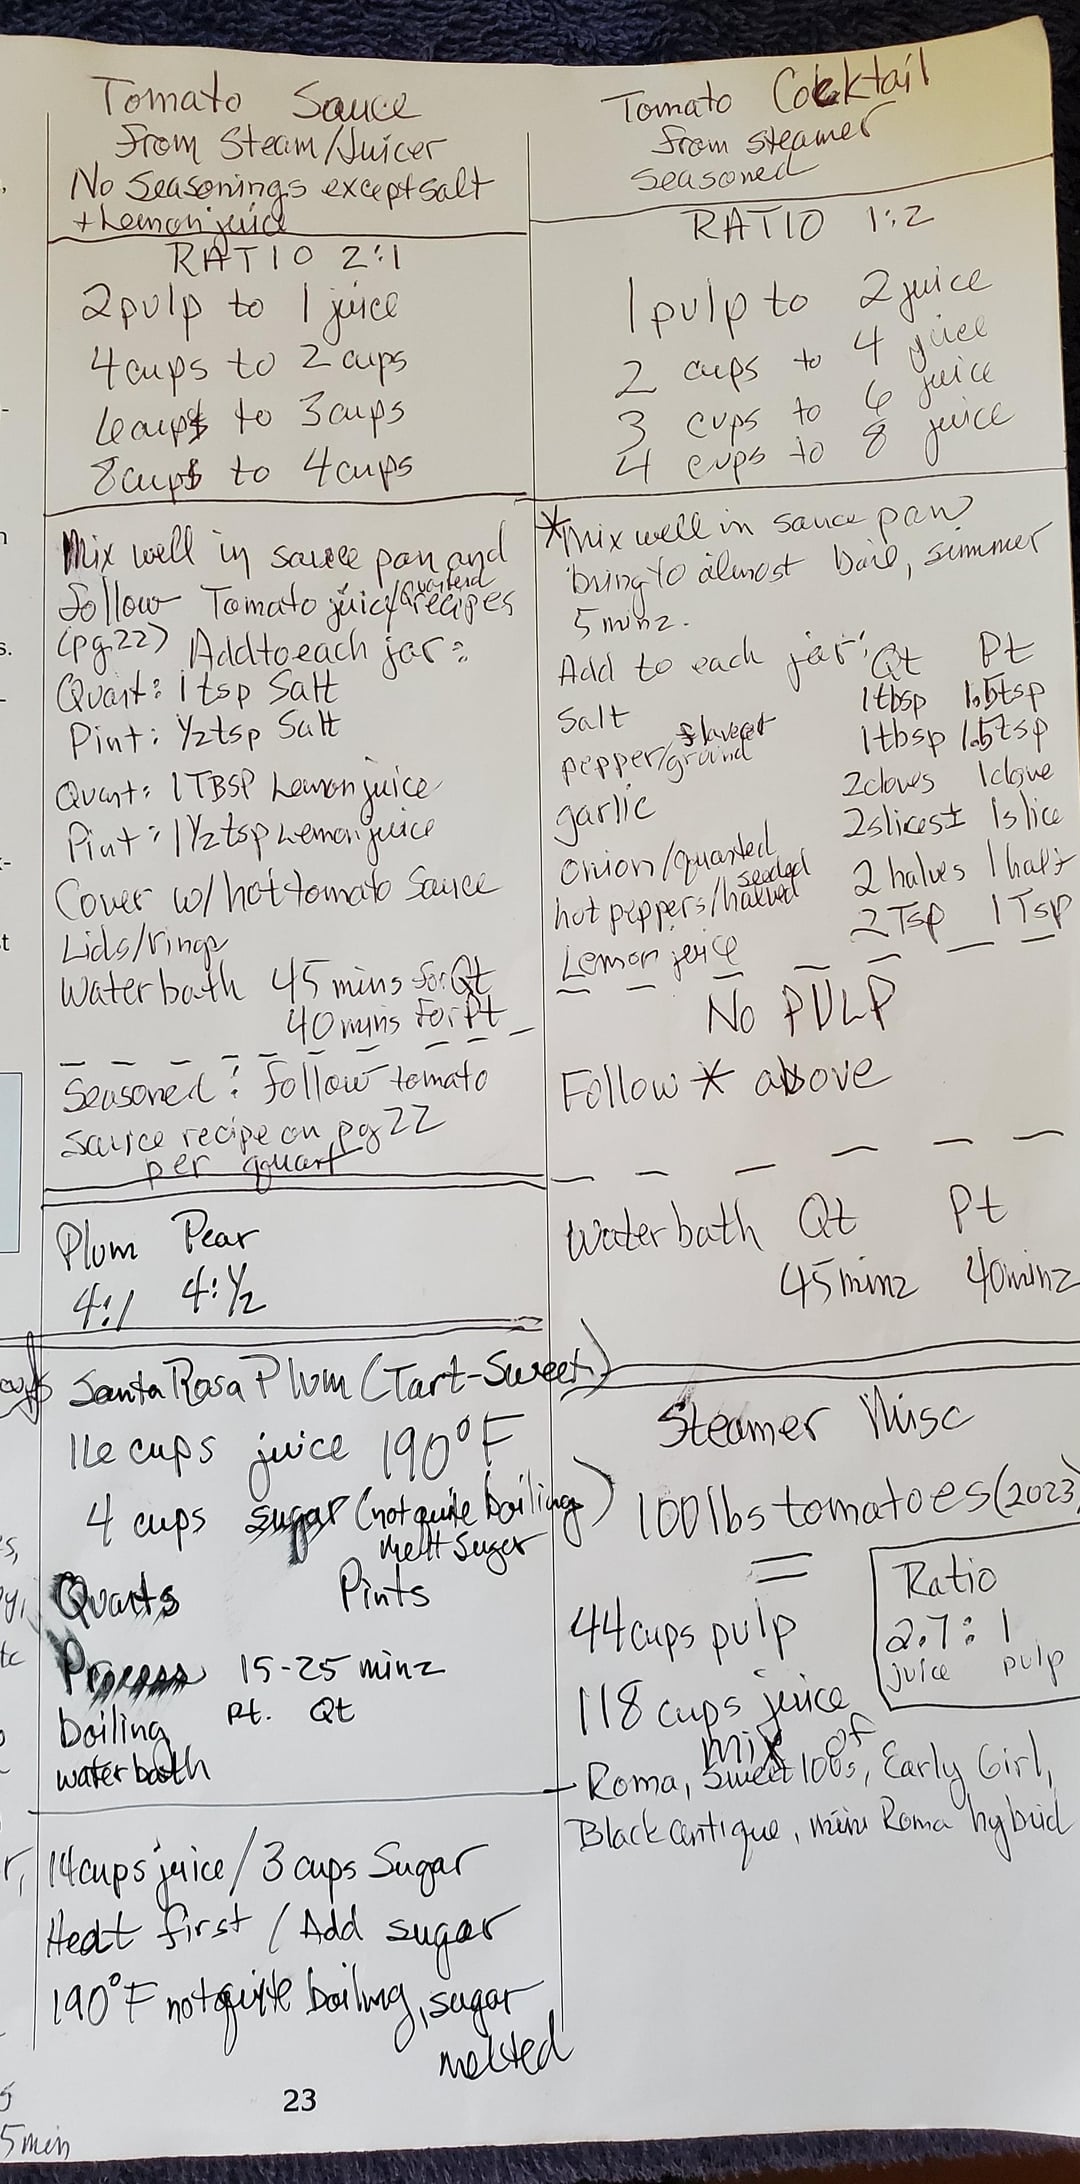 Tomato Sauce
From Steam/Juicer
No Seasonings except salt
+ Lemon juice
RATIO 2:1
2 pulp to 1 juice
4 cups to 2 cups
6 cups to 3 cups
8 cups to 4 cups
Mix well in sauce pan and
follow Tomato juice/quartered recipes
(pg.22) Add to each jar:
Quart: 1 tsp Salt
Pint: 1/2 tsp Salt
Quart: 1 TBSP Lemon juice
Pint: 1 1/2 tsp Lemon juice
Cover w/ hot tomato Sauce
Lids/rings
Waterbath 45 mins for Qt
40 mins For Pt
Seasoned: follow tomato
sauce recipe on pg 22
per qquart
Plum Pear
4:1 4:1/2
Santa Rosa Plum (Tart-Sweet)
16 cups juice 190°F
4 cups sugar (not quite boiling)
melt suger
Quarts Pints
Process 15-25 minz
boiling Pt. Qt
waterbath
14 cups juice / 3 cups Sugar
Heat first / Add sugar
190°F not quite boiling, sugar
melted
23
5 min
Tomato Cocktail
from steamer
Seasoned
RATIO 1:2
1 pulp to 2 juice
2 cups to 4 juice
3 cups to 6 juice
4 cups to 8 juice
*Mix well in sauce pan
bring to almost boil, simmer
5 minz.
Add to each jar: Qt Pt
Salt 1tbsp 1.5tsp
pepper/ground 1tbsp 1.5tsp
garlic 2cloves 1clove
Onion/quarted 2slices± 1slice
hot peppers/halved seeded 2 halves 1 half
Lemon juice 2 Tsp 1 Tsp
No PULP
Follow * above
Waterbath Qt Pt
45minz 40minz
Steamer Misc
100 lbs tomatoes (2023)
=
44 cups pulp
118 cups juice
Ratio
2.7:1
juice pulp
mix of
Roma, Sweet 100s, Early Girl,
Black antique, mini Roma hybrid